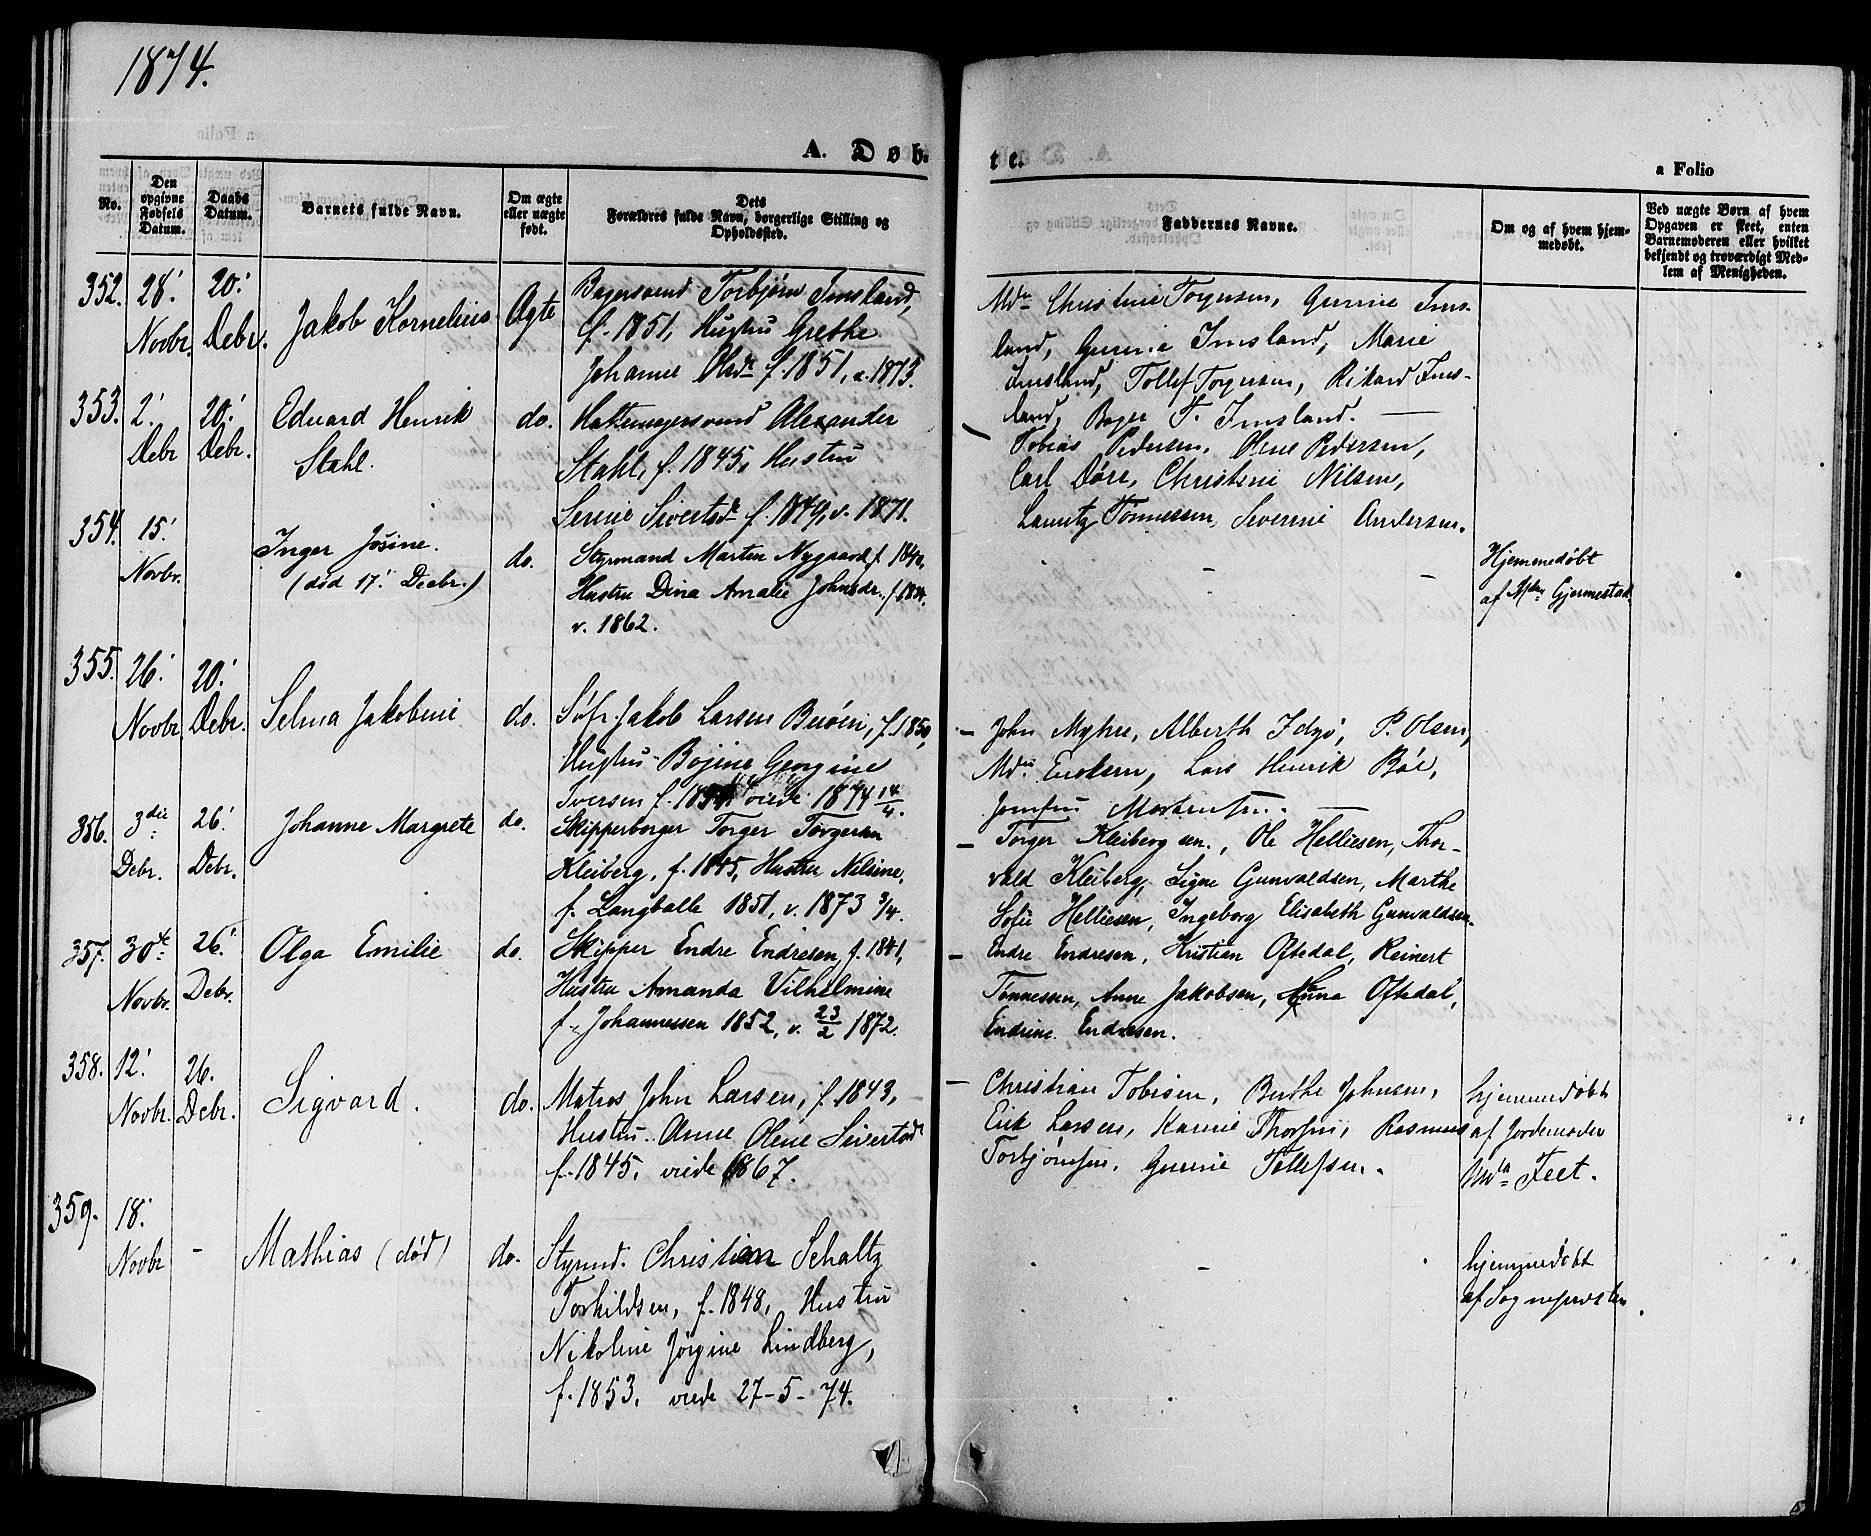 1874.
A. Døb-
te.
a Folio
No.
Den opgivne Fødsels Datum.
Daabs Datum.
Barnets fulde Navn.
Om ægte eller uægte født.
Dets Forældres fulde Navn, borgerlige Stilling og Opholdssted.
Faddernes Navne.
Om og af hvem hjem-
medøbt.
Ved uægte Børn af hvem
Opgaven er skeet, enten
Barnemoderen eller hvilket
bekjendt og troværdigt Med-
lem af Menigheden.
352. 28' Novbr. 20' Debr. Jakob Kornelius Ægte
Bagersvend Torbjørn Imsland,
f. 1851, Hustru Grethe
Johanne Olsdr f. 1851, v. 1873.
Mdm Christine Torgersen, Gurine Ims-
land, Gurine Imsland, Marie
Imsland, Tollef Torgersen, Rikard Ims-
land, Bager T. Imsland. —
353. 2' Debr 20' Debr. Eduard Henrik
Stahl. do.
Hattemagersvend Alexander
Stahl, f. 1845, Hustru
Serine Sivertsdr f. 1849, v. 1871.
Tobias Pedersen, Olene Pedersen,
Carl Dørr, Christine Nilsen,
Lauritz Tønnessen, Severine Andersen.
354. 15' Novbr. Inger Josine.
(død 17' Decbr.) do.
Styrmand Marten Nygaard f. 1840,
Hustru Dina Amalie Johnsdr. f. 1834,
v. 1862.
- -
Hjemmedøbt
af Mdm Gjermestad.
355. 26' Novbr 20' Debr. Selma Jakobine do.
Søfr. Jakob Larsen Buøen, f. 1850,
Hustru Bojine Georgine
Iversen f. 1854 viede 1874 14/4.
— John Myhre, Alberth Idsø, P. Olsen,
Mdm. Eriksen, Lars Henrik Bøe,
Jomfru Mortensen. —
356. 3die Debr. 26' Debr. Johanne Margrete do.
Skipperborger Torger Torgersen
Kleiberg, f. 1845, Hustru Nilsine,
f. Langballe 1851, v. 1873 3/4.
— Torger Kleiberg sen., Ole Helliesen, Thor-
vald Kleiberg, Signe Gunvaldsen, Marthe
Sofie Helliesen, Ingeborg Elisabeth Gunvaldsen.
357. 30te Novbr. 26' Debr. Olga Emilie do.
Skipper Endre Endresen, f. 1841,
Hustru Amanda Vilhelmine
f. Johannessen 1852, v. 23/2 1872.
— Endre Endresen, Kristian Oftedal, Reinert
Tønnessen, Anne Jakobsen, Anna Oftedal,
Endrine Endresen.
358. 12' Novbr. 26. Debr. Sigvard. do.
Matros John Larsen, f. 1843,
Hustru Anne Olene Sivertsdr
f. 1845, viede 1867.
— Christian Tobisen, Berthe Johnsen,
Erik Larsen, Karine Thorsen, Rasmus
Torbjørnsen, Gurine Tollefsen.
hjemmedøbt
af Jordemoder
Mda Feet.
359. 18' Novbr - Mathias (død) do.
Styrmd. Christian Schaltz
Torkildsen, f. 1848, Hustru
Nikoline Jørgine Lindberg,
f. 1853, viede 27-5-74.
-
hjemmedøbt
af Sognepresten.